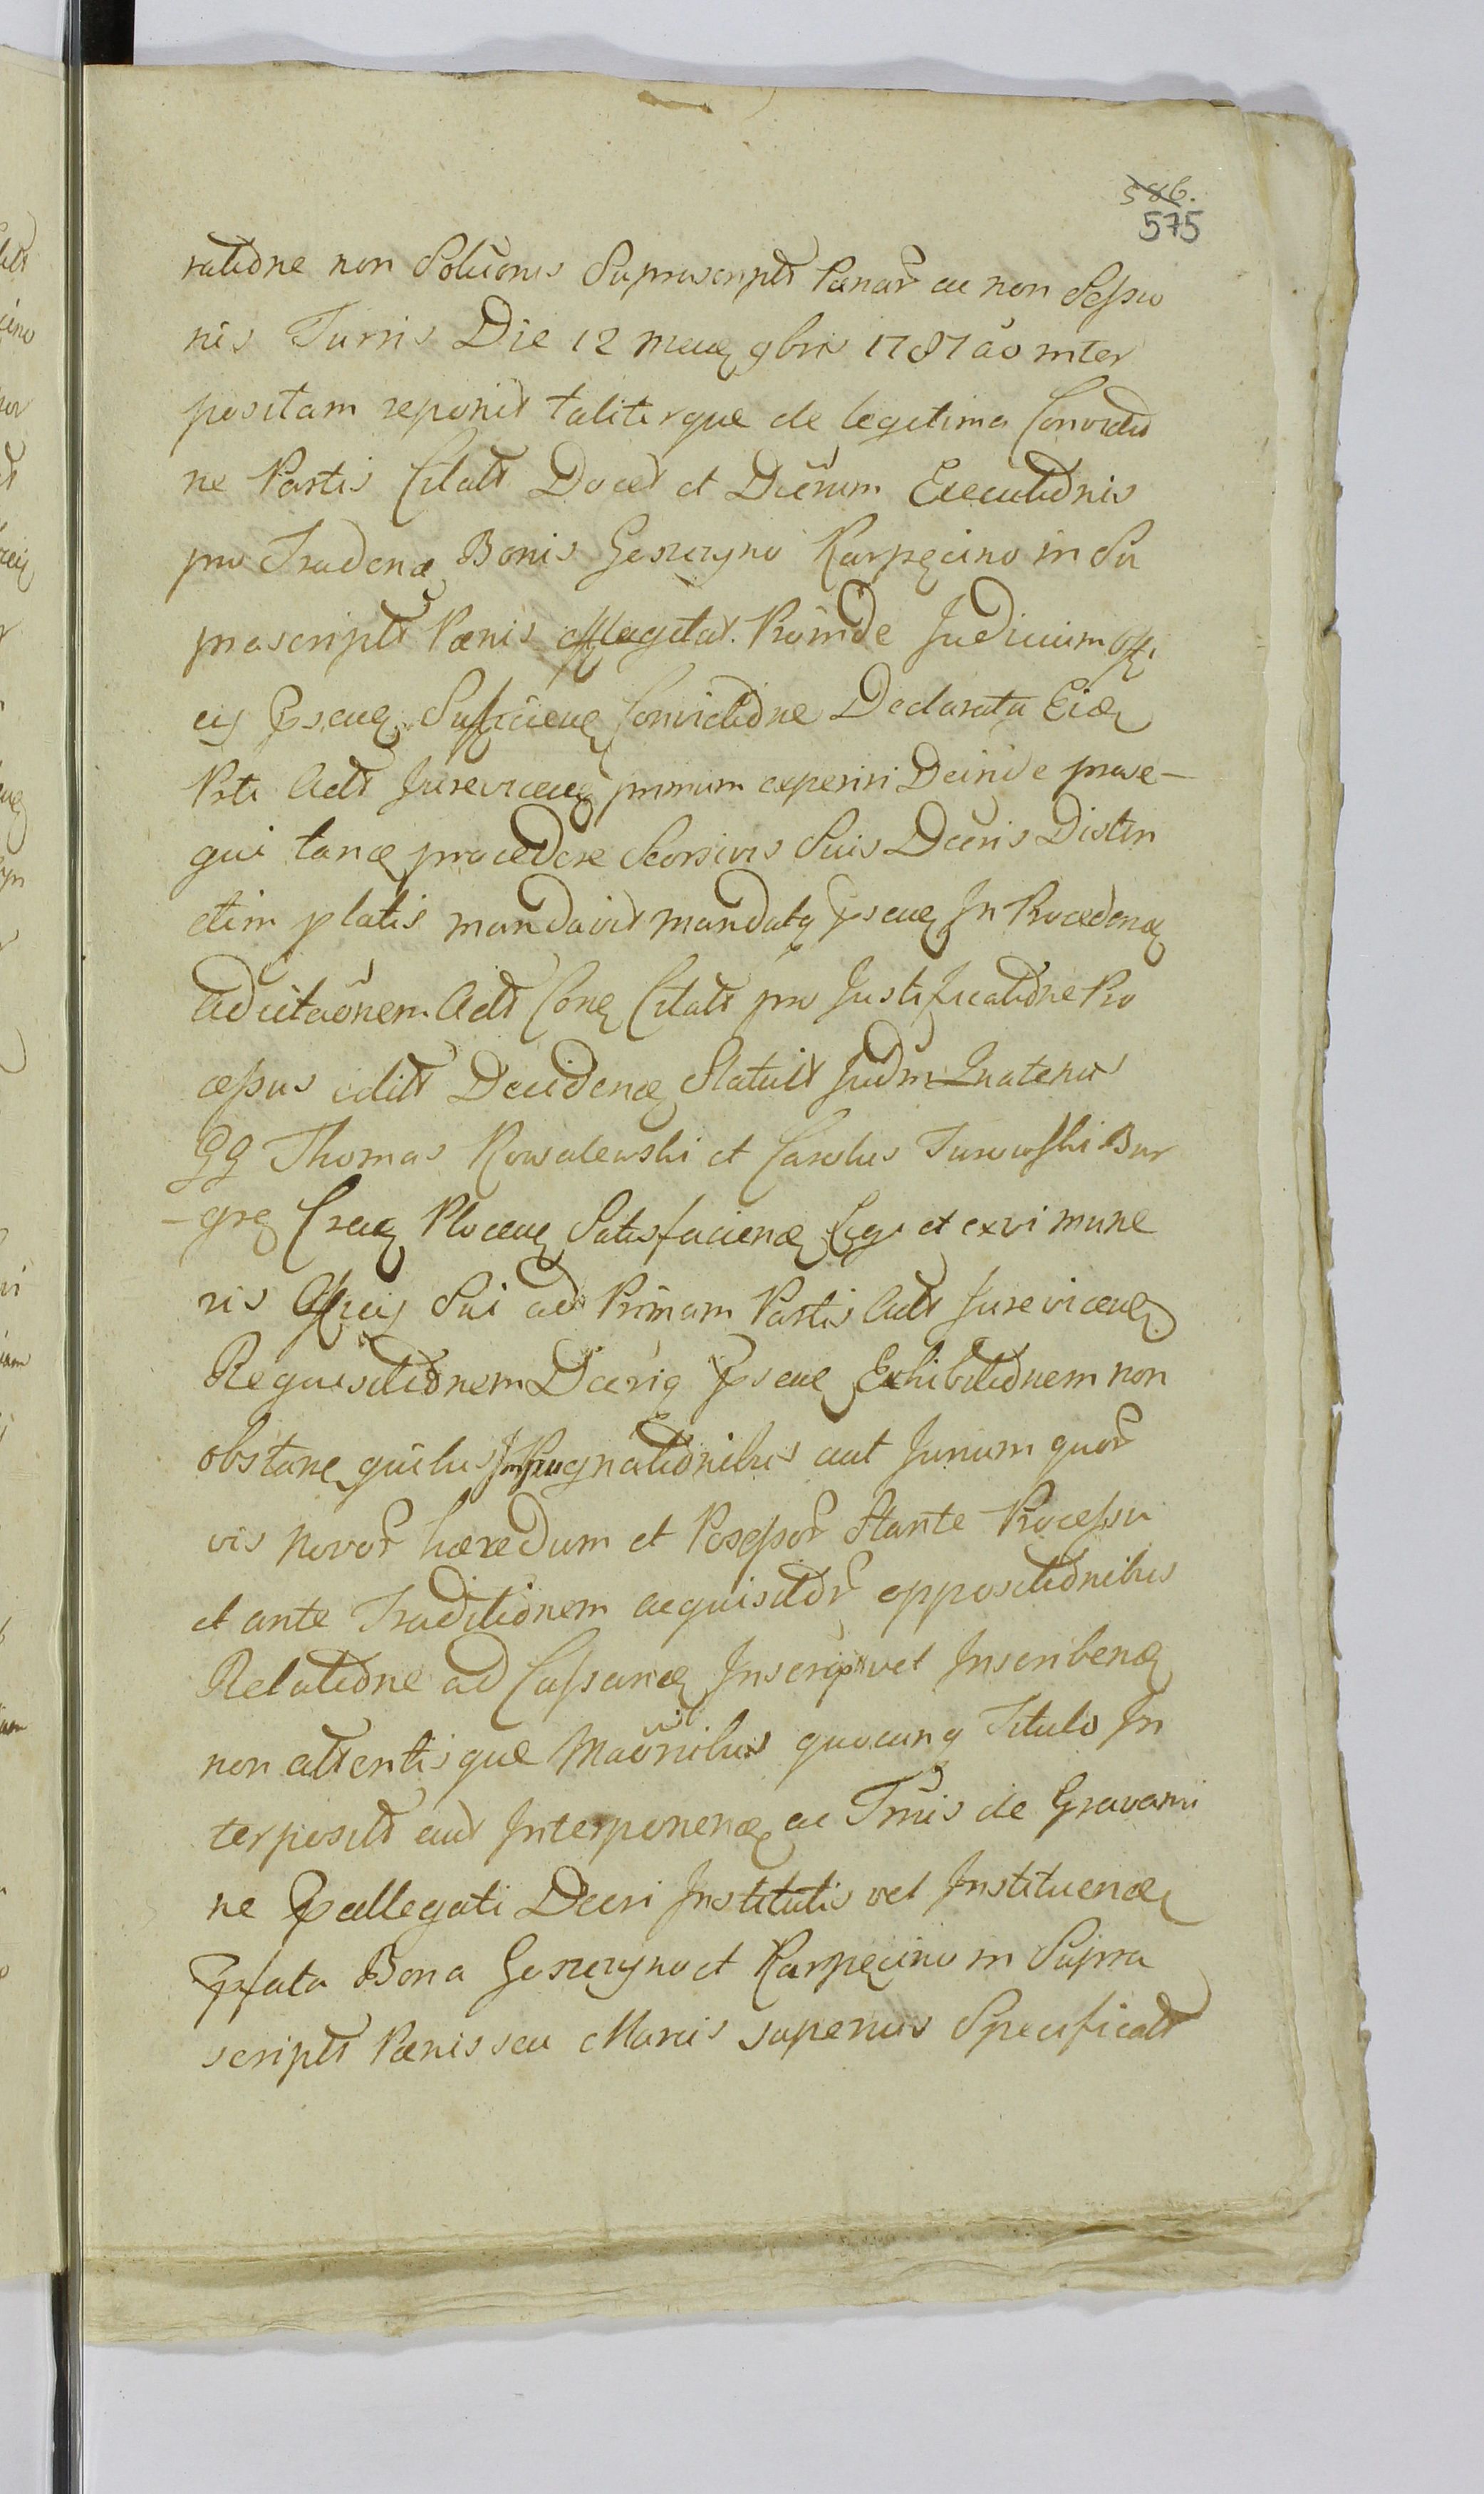 586.
575
ratiõne non Solũonis Suprascriptt Pænar̃ ac non Sessio
nis Turris Die 12 mens 9bris 1787 ãõ inter
positam reponit taliterque de legitima Convictiõ
ne Partis Citatt Docet et Dcẽrum Executiõnis
pro Tradenæ Bonis Goszczyno Karpęcino in Su
prascriptt Pænis efflagitat. Proinde Judicium Offi
cy pseus Sufficiens Convictiõne Declarata Eidem
Prti Actt Jurevicens primum experiri Deinde prose-
qui tanæ procedere Seorsivis Suis Dcẽris Distin
ctim platis mandavit mandatq pseus In Procedenæ
ad citaõnem Actt Conę Citatt pro Justificatiõne Pro
cessus editt Decidenæ Statuit Judm Quatenus
GG Thomas Kowalewski et Carolus Turowski Bur
-grę Creus Ploceus Satisfacienæ Legi et ex vi mune
ris Officy Sui ad Primam Partis Actt Jurevicens
Requisitiõnem Dcẽriq pseus Exhibitiõnem non
obstane quibus Impugnatiõnibus aut Jurium quor̃
vis novor̃ hæredum et Possessor̃ Stante Processu
et ante Traditiõnem acquisitor̃ oppositiõnibus
Relatiõne ad Cassanæ Inscript vel Inscribenæ
non attentisque Maõnibus quocunq Titulo In
terpositt aut Interponenæ ac Tmis de Gravami
ne pallegati Dcẽri Institutis vel Instituenæ
pfata Bona Goszczyno et Karpęcino in Supra
scriptt Pænis seu Marcis superius Specificatt